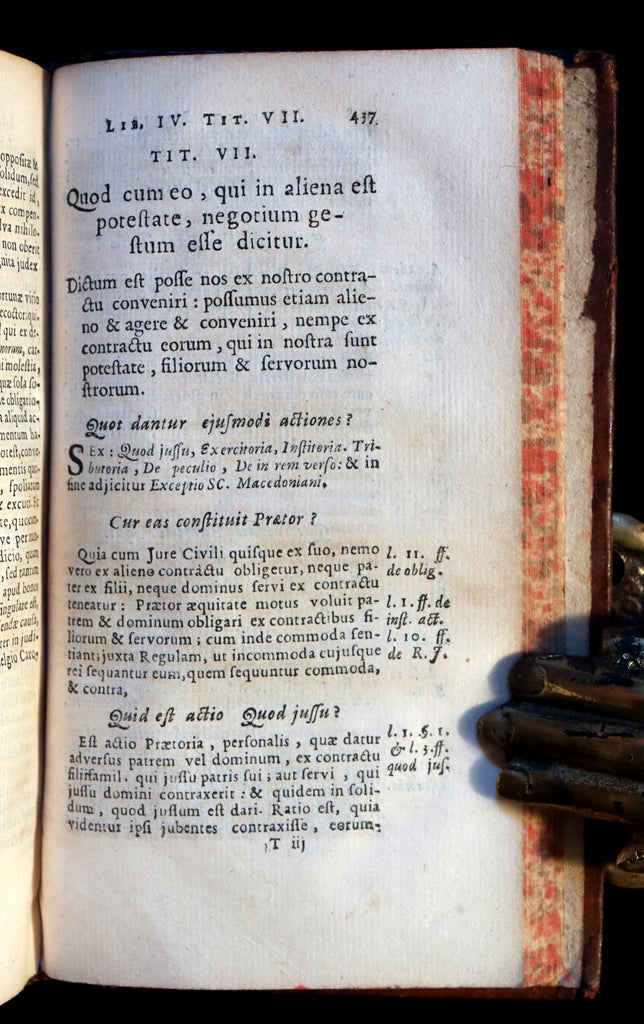 oppositæ &
olidum, sed
excedit id,
x compen-
lva nihilo-
non oberit
judex
LIB. IV. TIT. VII. 437
TIT. VII.
Quod cum eo, qui in aliena est
potestate, negotium ge-
stum esse dicitur.
Dictum est posse nos ex nostro contra-
ctu conveniri : possumus etiam alie-
no & agere & conveniri, nempe ex
contractu eorum, qui in nostra sunt
potestate, filiorum & servorum no-
strorum.
Quot dantur ejusmodi actiones?
SEx : Quod jussu, Exercitoria, Institoria. Tri-
butoria, De peculio, De in rem verso : & in
fine adjicitur Exceptio SC. Macedoniani.
Cur eas constituit Prætor ?
Quia cum Jure Civili quisque ex suo, nemo
vero ex alieno contractu obligetur, neque pa-
ter ex filii, neque dominus servi ex contractu
teneatur : Prætor æquitate motus voluit pa-
trem & dominum obligari ex contractibus fi-
liorum & servorum ; cum inde commoda sen-
tiant: juxta Regulam, ut incommoda cujusque
rei sequantur eum, quem sequuntur commoda,
& contra,
l. 11. ff.
de oblig.
l. 1. ff. de
inst. act.
l. 10. ff.
de R. J.
Quid est actio Quod jussu?
Est actio Prætoria, personalis, quæ datur
adversus patrem vel dominum, ex contractu
filiifamil. qui jussu patris sui ; aut servi, qui
jussu domini contraxerit : & quidem in soli-
dum, quod justum est dari. Ratio est, quia
videntur ipsi jubentes contraxisse, eorum-
l. 1. §. 1.
& l. 3. ff.
quod jus.
T iij